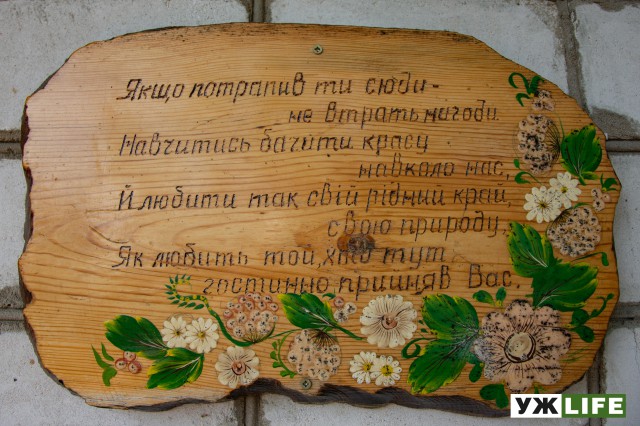 Якщо потрапив ти сюди -
не втрать нагоди
Навчитись бачити красу
навколо нас,
Й любити так свій рідний край,
свою природу,
Як любить той, хто тут
гостинно прийняв Вас.
УЖ LIFE